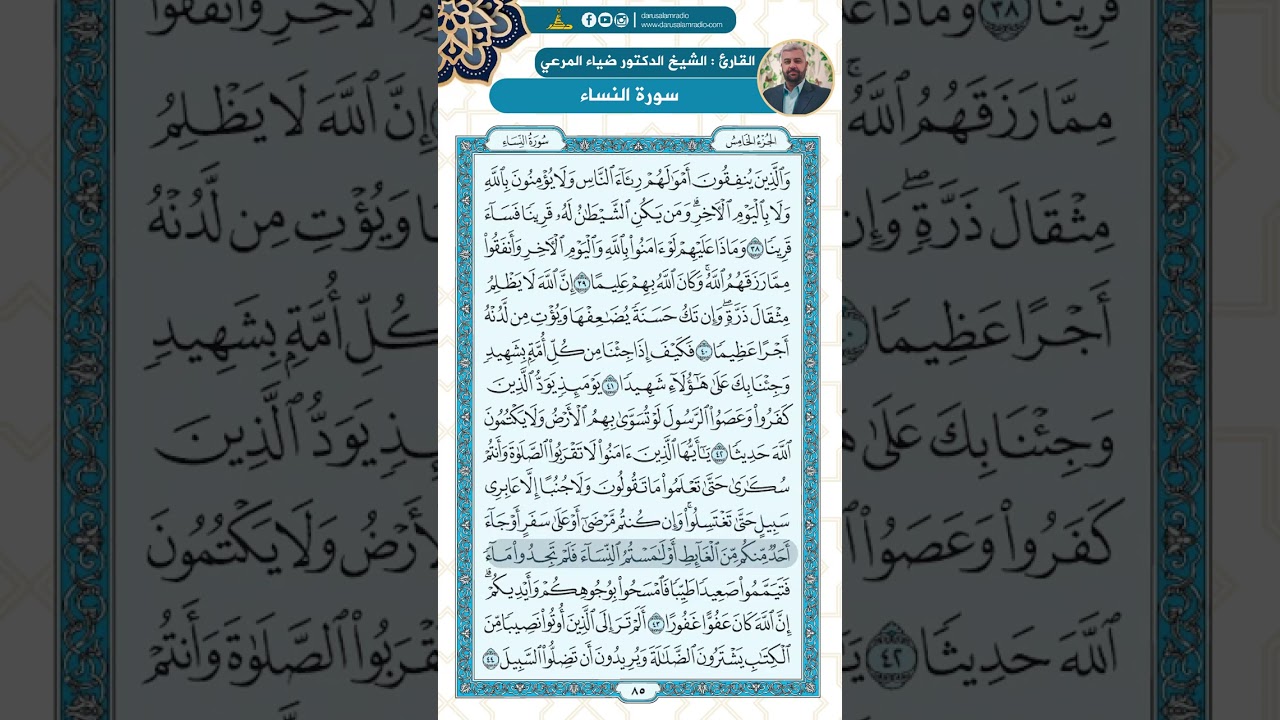 darusalamradio
www.darusalamradio.com
القارئ : الشيخ الدكتور ضياء المرعي
سورة النساء
الجُزْءُ الخَامِسُ
سُورَةُ النِّسَاءِ
وَٱلَّذِينَ يُنفِقُونَ أَمْوَٰلَهُمْ رِئَآءَ ٱلنَّاسِ وَلَا يُؤْمِنُونَ بِٱللَّهِ
وَلَا بِٱلْيَوْمِ ٱلْءَاخِرِۗ وَمَن يَكُنِ ٱلشَّيْطَٰنُ لَهُۥ قَرِينًا فَسَآءَ
قَرِينًا ٣٨ وَمَاذَا عَلَيْهِمْ لَوْ ءَامَنُوا۟ بِٱللَّهِ وَٱلْيَوْمِ ٱلْءَاخِرِ وَأَنفَقُوا۟
مِمَّا رَزَقَهُمُ ٱللَّهُۚ وَكَانَ ٱللَّهُ بِهِمْ عَلِيمًا ٣٩ إِنَّ ٱللَّهَ لَا يَظْلِمُ
مِثْقَالَ ذَرَّةٍۖ وَإِن تَكُ حَسَنَةً يُضَٰعِفْهَا وَيُؤْتِ مِن لَّدُنْهُ
أَجْرًا عَظِيمًا ٤٠ فَكَيْفَ إِذَا جِئْنَا مِن كُلِّ أُمَّةٍۭ بِشَهِيدٍ
وَجِئْنَا بِكَ عَلَىٰ هَٰٓؤُلَآءِ شَهِيدًا ٤١ يَوْمَئِذٍ يَوَدُّ ٱلَّذِينَ
كَفَرُوا۟ وَعَصَوُا۟ ٱلرَّسُولَ لَوْ تُسَوَّىٰ بِهِمُ ٱلْأَرْضُ وَلَا يَكْتُمُونَ
ٱللَّهَ حَدِيثًا ٤٢ يَٰٓأَيُّهَا ٱلَّذِينَ ءَامَنُوا۟ لَا تَقْرَبُوا۟ ٱلصَّلَوٰةَ وَأَنتُمْ
سُكَٰرَىٰ حَتَّىٰ تَعْلَمُوا۟ مَا تَقُولُونَ وَلَا جُنُبًا إِلَّا عَابِرِى
سَبِيلٍ حَتَّىٰ تَغْتَسِلُوا۟ۚ وَإِن كُنتُم مَّرْضَىٰٓ أَوْ عَلَىٰ سَفَرٍ أَوْ جَآءَ
أَحَدٌ مِّنكُم مِّنَ ٱلْغَآئِطِ أَوْ لَٰمَسْتُمُ ٱلنِّسَآءَ فَلَمْ تَجِدُوا۟ مَآءً
فَتَيَمَّمُوا۟ صَعِيدًا طَيِّبًا فَٱمْسَحُوا۟ بِوُجُوهِكُمْ وَأَيْدِيكُمْۗ
إِنَّ ٱللَّهَ كَانَ عَفُوًّا غَفُورًا ٤٣ أَلَمْ تَرَ إِلَى ٱلَّذِينَ أُوتُوا۟ نَصِيبًا مِّنَ
ٱلْكِتَٰبِ يَشْتَرُونَ ٱلضَّلَٰلَةَ وَيُرِيدُونَ أَن تَضِلُّوا۟ ٱلسَّبِيلَ ٤٤
٨٥